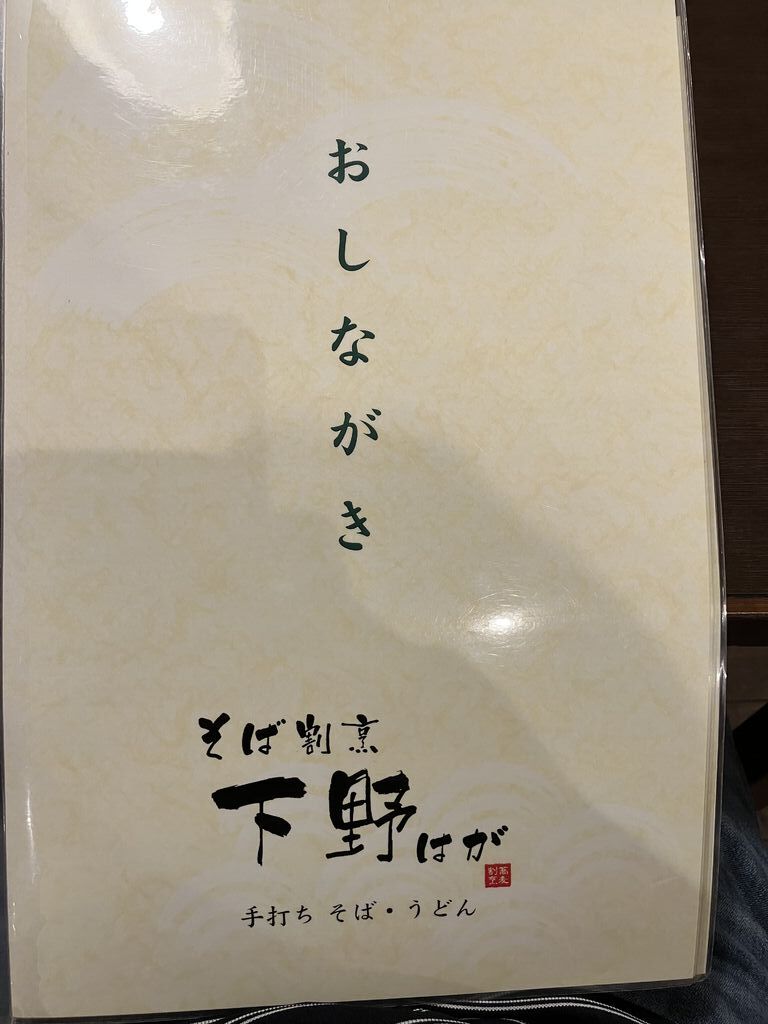 おしながき
そば割烹
下野はが
蕎麦
割烹
手打ち そば・うどん